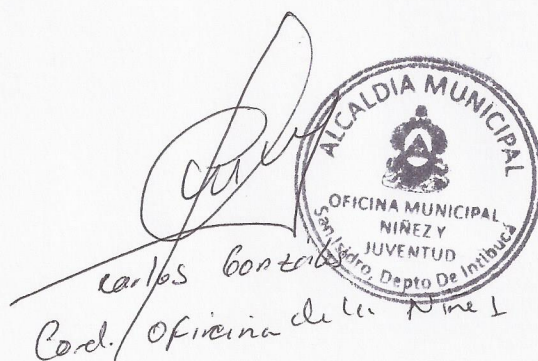 ALCALDIA MUNICIPAL
OFICINA MUNICIPAL
NIÑEZ Y
JUVENTUD
San Isidro, Depto De Intibucá
Carlos Gonzáles
Cord. Oficina de la